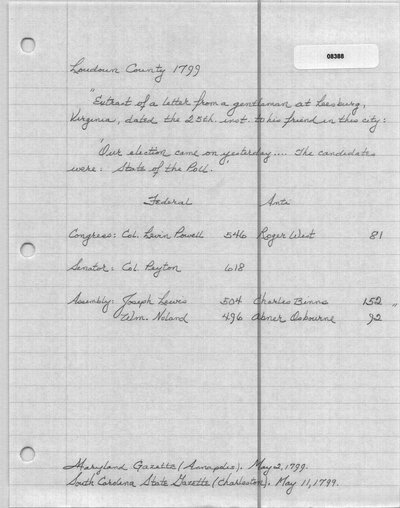 08388
Loudoun County 1799
"Extract of a letter from a gentleman at Leesburg,
Virginia, dated the 25th. inst. to his friend in this city:
"Our election came on yesterday.... The candidates
were: State of the Poll.
Federal Anti
Congress: Col. Levin Powell 546 Roger West 81
Senator: Col. Peyton 618
Assembly: Joseph Lewis 504 Charles Binns 152 "
Wm. Noland 496 Abner Osbourne 92
Maryland Gazette (Annapolis). May 2, 1799.
South Carolina State Gazette (Charleston). May 11, 1799.